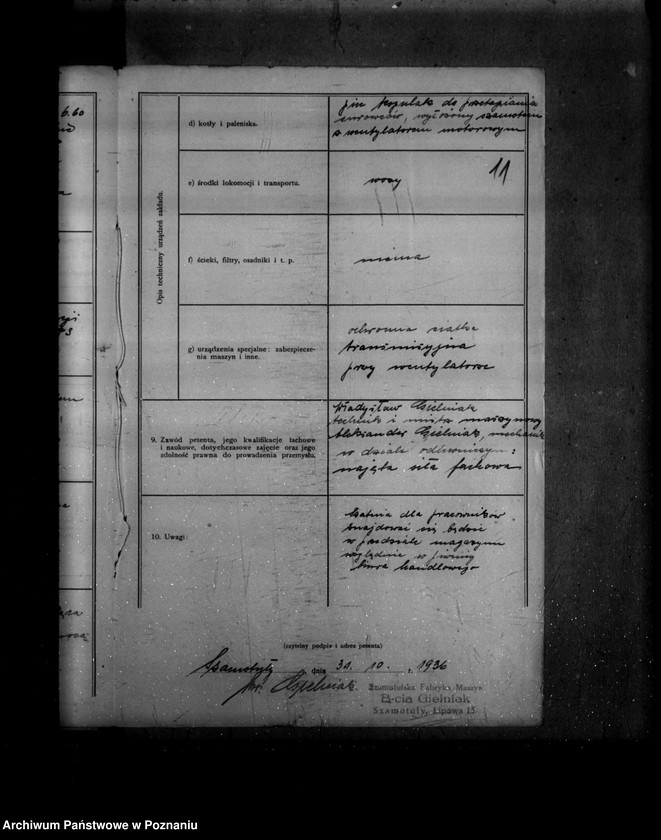 6.60
d) kotły i paleniska.
piec kopulak do przetapiania
surowców, wyłożony szamotem
z wentylatorem motorowym
11
e) środki lokomocji i transportu.
wozy
Opis techniczny urządzeń zakładu.
f) ścieki, filtry, osadniki i t. p.
niema
g) urządzenia specjalne: zabezpiecze-
nia maszyn i inne.
ochronna siatka
transmisyjna
przy wentylatorze
9. Zawód petenta, jego kwalifikacje fachowe
i naukowe, dotychczasowe zajęcie oraz jego
zdolność prawna do prowadzenia przemysłu.
Władysław Gielniak
technik i mistrz maszynowy
Aleksander Gielniak, mechanik
w dziale odlewniczym:
najęta siła fachowa
10. Uwagi:
szatnia dla pracowników
znajdować się będzie
w przedziale magazynu
względnie w piwnicy
biura handlowego
(czytelny podpis i adres petenta)
Szamotuły dnia 31. 10. , 1936
Gielniak
Szamotulska Fabryka Maszyn
B-cia Gielniak
Szamotuły, Lipowa 15
Archiwum Państwowe w Poznaniu